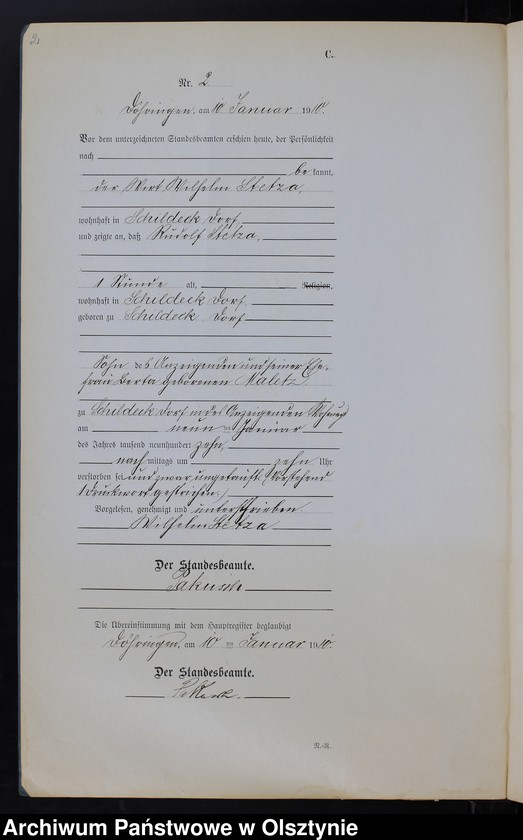 2.
C.
Nr. 2
Döhringen, am 10 Januar 1910.
Vor dem unterzeichneten Standesbeamten erschien heute, der Persönlichkeit
nach
bekannt,
der Wirt Wilhelm Stetza,
wohnhaft in Schildeck Dorf
und zeigte an, daß Rudolf Stetza,
1 Stunde alt, Religion,
wohnhaft in Schildeck Dorf
geboren zu Schildeck Dorf
Sohn des Anzeigenden und seiner Ehe-
frau Berta geborenen Maletz
zu Schildeck Dorf in des Anzeigenden Wohnung
am neun ten Januar
des Jahres tausend neunhundert zehn,
nach mittags um zehn Uhr
verstorben sei und zwar ungetauft. (Vorstehend
1 Druckwort gestrichen.)
Vorgelesen, genehmigt und unterschrieben
Wilhelm Stetza
Der Standesbeamte.
Die Übereinstimmung mit dem Hauptregister beglaubigt
Döhringen, am 10 ten Januar 1910.
Der Standesbeamte.
N.-R.
Archiwum Państwowe w Olsztynie